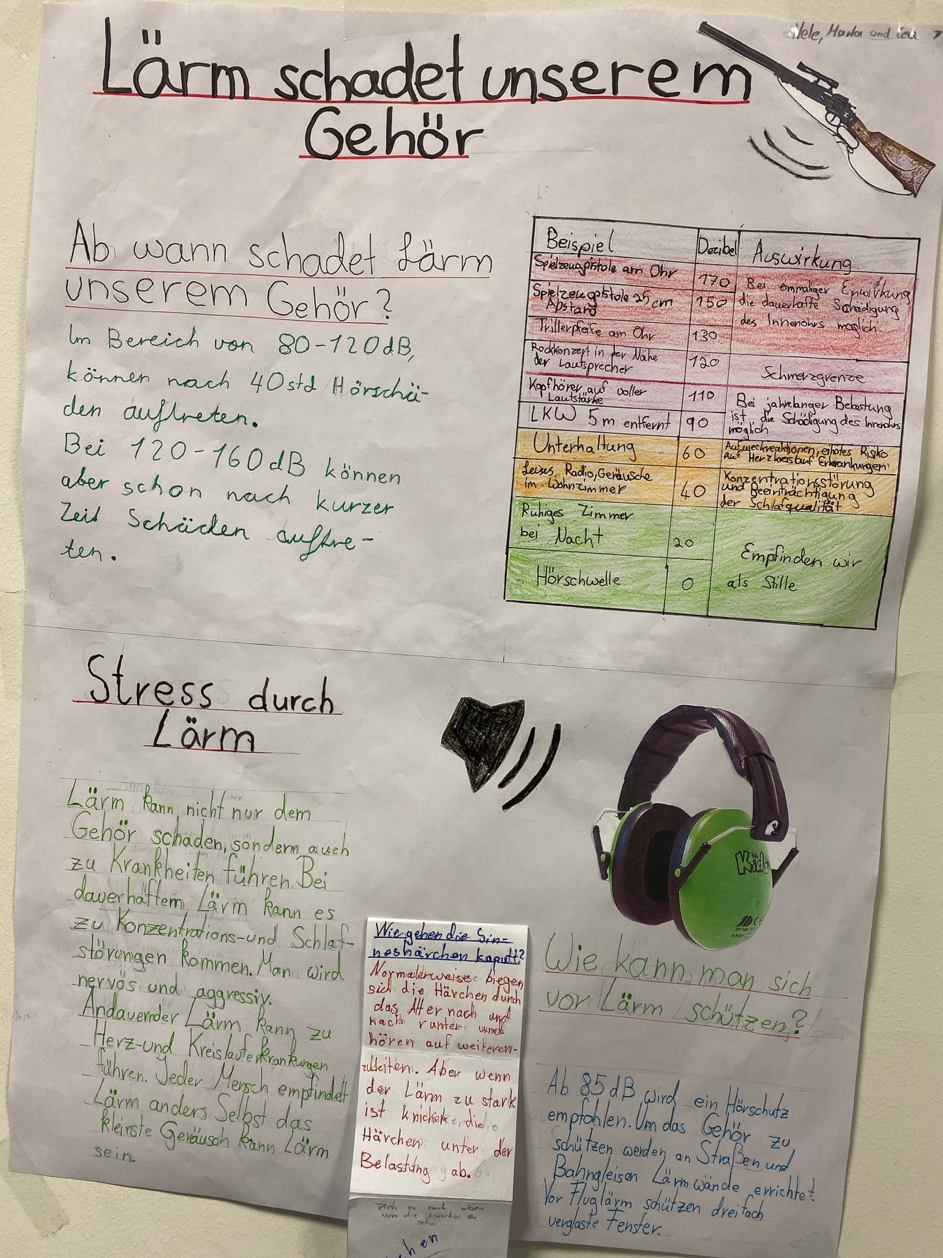 Nele, Marla und
Lärm schadet unserem
Gehör
Ab wann schadet Lärm
unserem Gehör?
Im Bereich von 80-120dB,
können nach 40std Hörschä-
den auftreten.
Bei 120-160dB können
aber schon nach kurzer
Zeit Schäden auftre-
ten.
Beispiel Dezibel Auswirkung
Spielzeugpistole am Ohr 170
Spielzeugpistole 25cm Abstand 150
Trillerpfeife am Ohr 130
Bei einmaliger Einwirkung
die dauerhafte Schädigung
des Innenohrs möglich
Rockkonzert in der Nähe
der Lautsprecher 120 Schmerzgrenze
Kopfhörer auf voller
Lautstärke 110
LKW 5m entfernt 90
Bei jahrelanger Belastung
ist die Schädigung des Innenohrs
möglich
Unterhaltung 60
Risiko
auf Herzkreislauf Erkrankungen
Leises Radio, Geräusche
im Wohnzimmer 40
Konzentrationsstörung
und Beeinträchtigung
der Schlafqualität
Ruhiges Zimmer
bei Nacht 20
Hörschwelle 0
Empfinden wir
als Stille
Stress durch
Lärm
Lärm kann nicht nur dem
Gehör schaden, sondern auch
zu Krankheiten führen. Bei
dauerhaftem Lärm kann es
zu Konzentrations-und Schlaf-
störungen kommen. Man wird
nervös und aggressiv.
Andauernder Lärm kann zu
Herz-und Kreislauferkrankungen
führen. Jeder Mensch empfindet
Lärm anders. Selbst das
kleinste Geräusch kann Lärm
sein.
Wie gehen die Sin-
neshärchen kaputt?
Normalerweise biegen
sich die Härchen durch
das Alter nach und
nach runter und
hören auf weiterzu-
leiten. Aber wenn
der Lärm zu stark
ist knicken die
Härchen unter der
Belastung ab.
Kidz
Wie kann man sich
vor Lärm schützen?
Ab 85dB wird ein Hörschutz
empfohlen. Um das Gehör zu
schützen werden an Straßen und
Bahngleisen Lärmwände errichtet.
Vor Fluglärm schützen dreifach
verglaste Fenster.